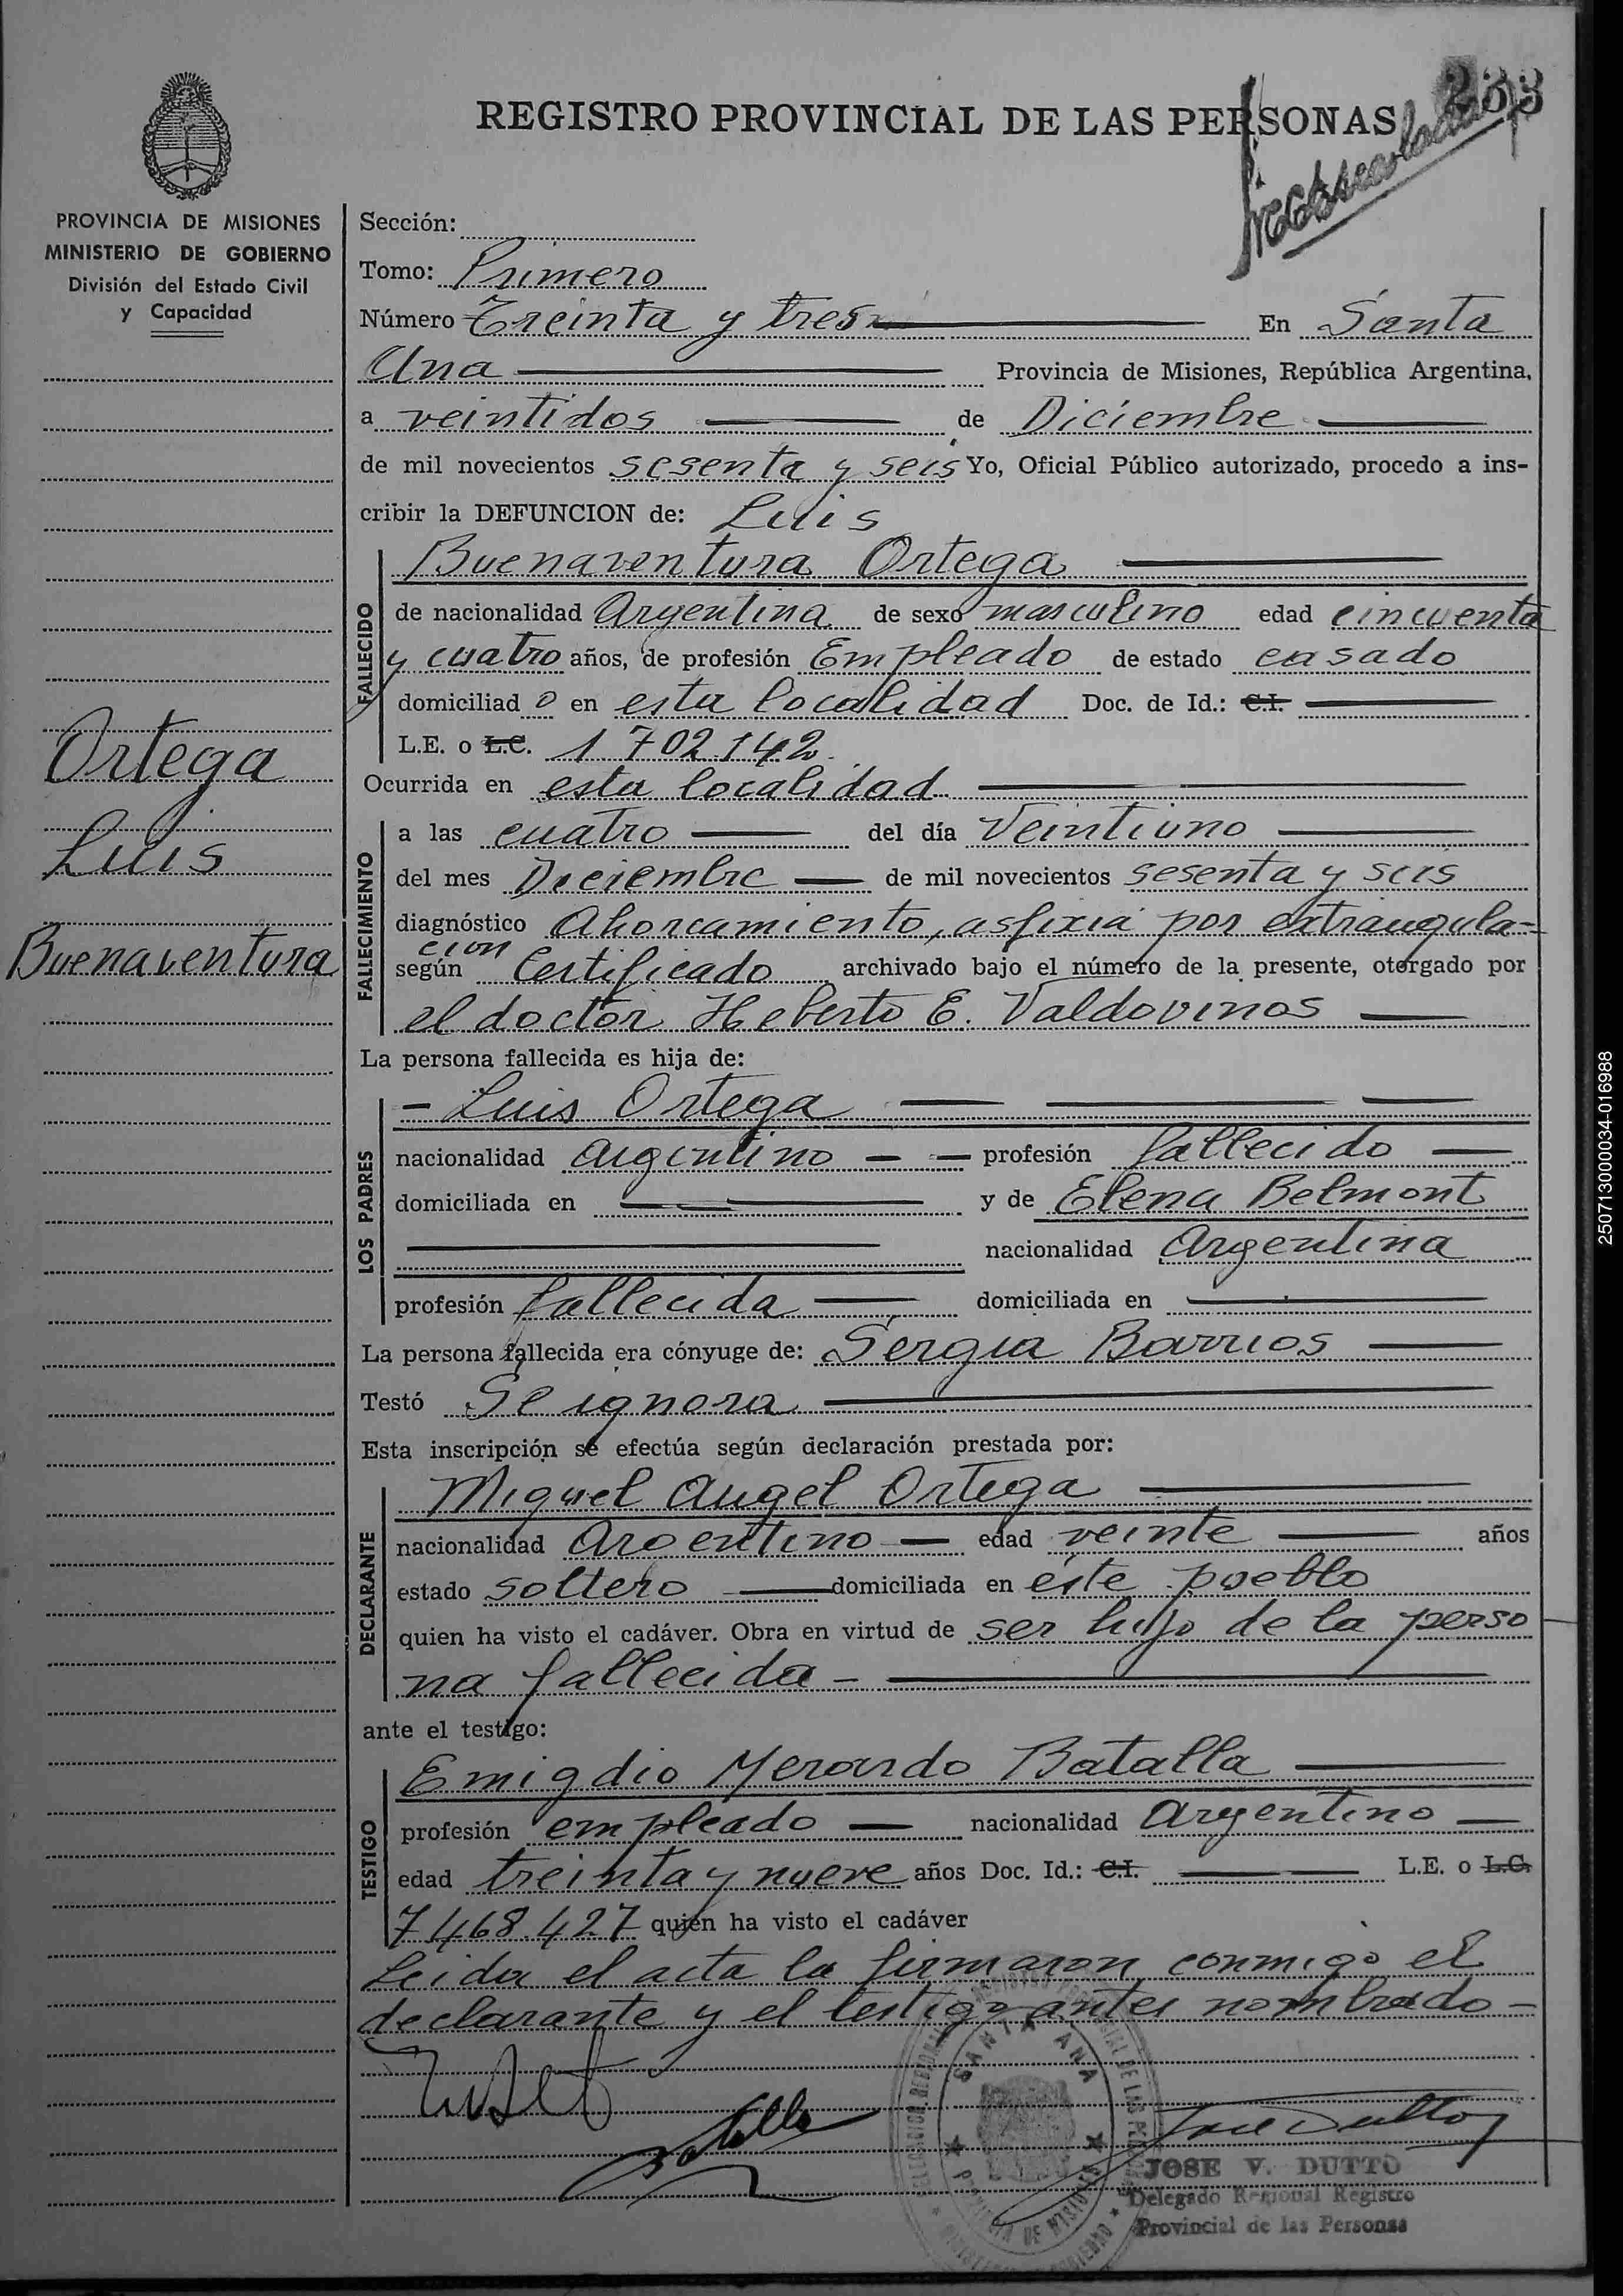 233
REGISTRO PROVINCIAL DE LAS PERSONAS
PROVINCIA DE MISIONES
MINISTERIO DE GOBIERNO
División del Estado Civil
y Capacidad
Ortega
Luis
Buenaventura
Sección:
Tomo: Primero
Número Treinta y tres En Santa
Ana Provincia de Misiones, República Argentina,
a veintidos de Diciembre
de mil novecientos sesenta y seis Yo, Oficial Público autorizado, procedo a ins-
cribir la DEFUNCION de: Luis
Buenaventura Ortega
FALLECIDO
de nacionalidad Argentina de sexo masculino edad cincuenta
y cuatro años, de profesión Empleado de estado casado
domiciliad o en esta localidad Doc. de Id.: C.I.
L.E. o L.C. 1.702.142
Ocurrida en esta localidad
FALLECIMIENTO
a las cuatro del día Veintiuno
del mes Diciembre de mil novecientos sesenta y seis
diagnóstico Ahorcamiento, asfixia por extrangula-
cion
según Certificado archivado bajo el número de la presente, otorgado por
el doctor Heberto E. Valdovinos
La persona fallecida es hija de:
LOS PADRES
- Luis Ortega
nacionalidad argentino profesión fallecido
domiciliada en y de Elena Belmont
nacionalidad Argentina
profesión fallecida domiciliada en
La persona fallecida era cónyuge de: Sergia Barrios
Testó Se ignora
Esta inscripción se efectúa según declaración prestada por:
DECLARANTE
Miguel Angel Ortega
nacionalidad Argentino edad veinte años
estado soltero domiciliada en este pueblo
quien ha visto el cadáver. Obra en virtud de ser hijo de la perso
na fallecida -
ante el testigo:
TESTIGO
Emigdio Merardo Batalla
profesión empleado nacionalidad argentino
edad treinta y nueve años Doc. Id.: C.I. L.E. o L.C.
7468.427 quien ha visto el cadáver
Leida el acta la firmaron conmigo el
declarante y el testigo antes nombrado -
SANTA ANA
PROVINCIA DE MISIONES
JOSE V. DUTTO
Delegado Regional Registro
Provincial de las Personas
250713000034-016988